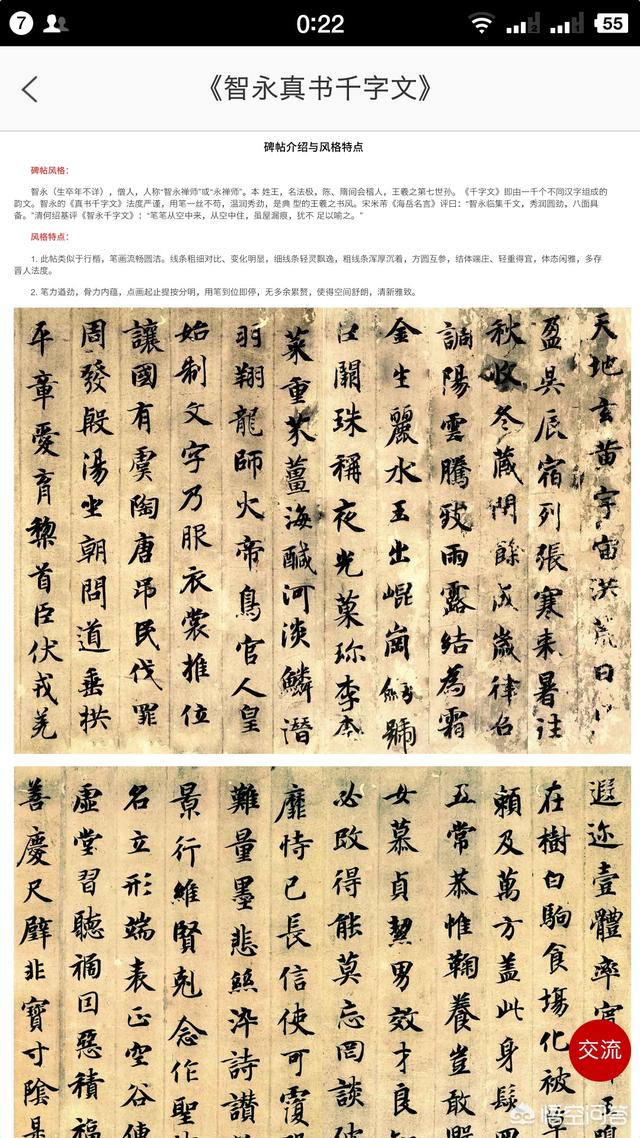 7
0:22
2
55
《智永真书千字文》
碑帖介绍与风格特点
碑帖风格：
智永（生卒年不详），僧人，人称“智永禅师”或“永禅师”。本 姓王，名法极，陈、隋间会稽人，王羲之第七世孙。《千字文》即由一千个不同汉字组成的
韵文。智永的《真书千字文》法度严谨，用笔一丝不苟，温润秀劲，是典 型的王羲之书风。宋米芾《海岳名言》评曰：“智永临集千文，秀润圆劲，八面具
备。”清何绍基评《智永千字文》：“笔笔从空中来，从空中住，虽屋漏痕，犹不 足以喻之。”
风格特点：
1. 此帖类似于行楷，笔画流畅圆洁。线条粗细对比、变化明显，细线条轻灵飘逸，粗线条浑厚沉着，方圆互参，结体端庄、轻重得宜，体态闲雅，多存
晋人法度。
2. 笔力遒劲，骨力内蕴，点画起止提按分明，用笔到位即停，无多余累赘，使得空间舒朗，清新雅致。
天地玄黄宇宙洪荒日
盈昃辰宿列張寒来暑往
秋收冬蔵閏餘成歲律召
調陽雲騰致雨露結為霜
金生麗水玉出崐崗劍號
巨闕珠稱夜光菓珍李柰
菜重芥薑海醎河淡鱗潜
羽翔龍師火帝鳥官人皇
始制文字乃服衣裳推位
讓國有虞陶唐吊民伐罪
周發殷湯坐朝問道垂拱
平章愛育黎首臣伏戎羌
遐迩壹體率賓王
在樹白駒食場化被草
賴及萬方盖此身髮
五常恭惟鞠養豈敢毀
女慕貞絜男效才良知
必改得能莫忘罔談彼
靡恃己長信使可覆
難量墨悲絲淬詩讃
景行維賢剋念作聖
名立形端表正空谷傳
虚堂習聽禍因惡積福
善慶尺璧非寶寸陰是
交流
悟空问答